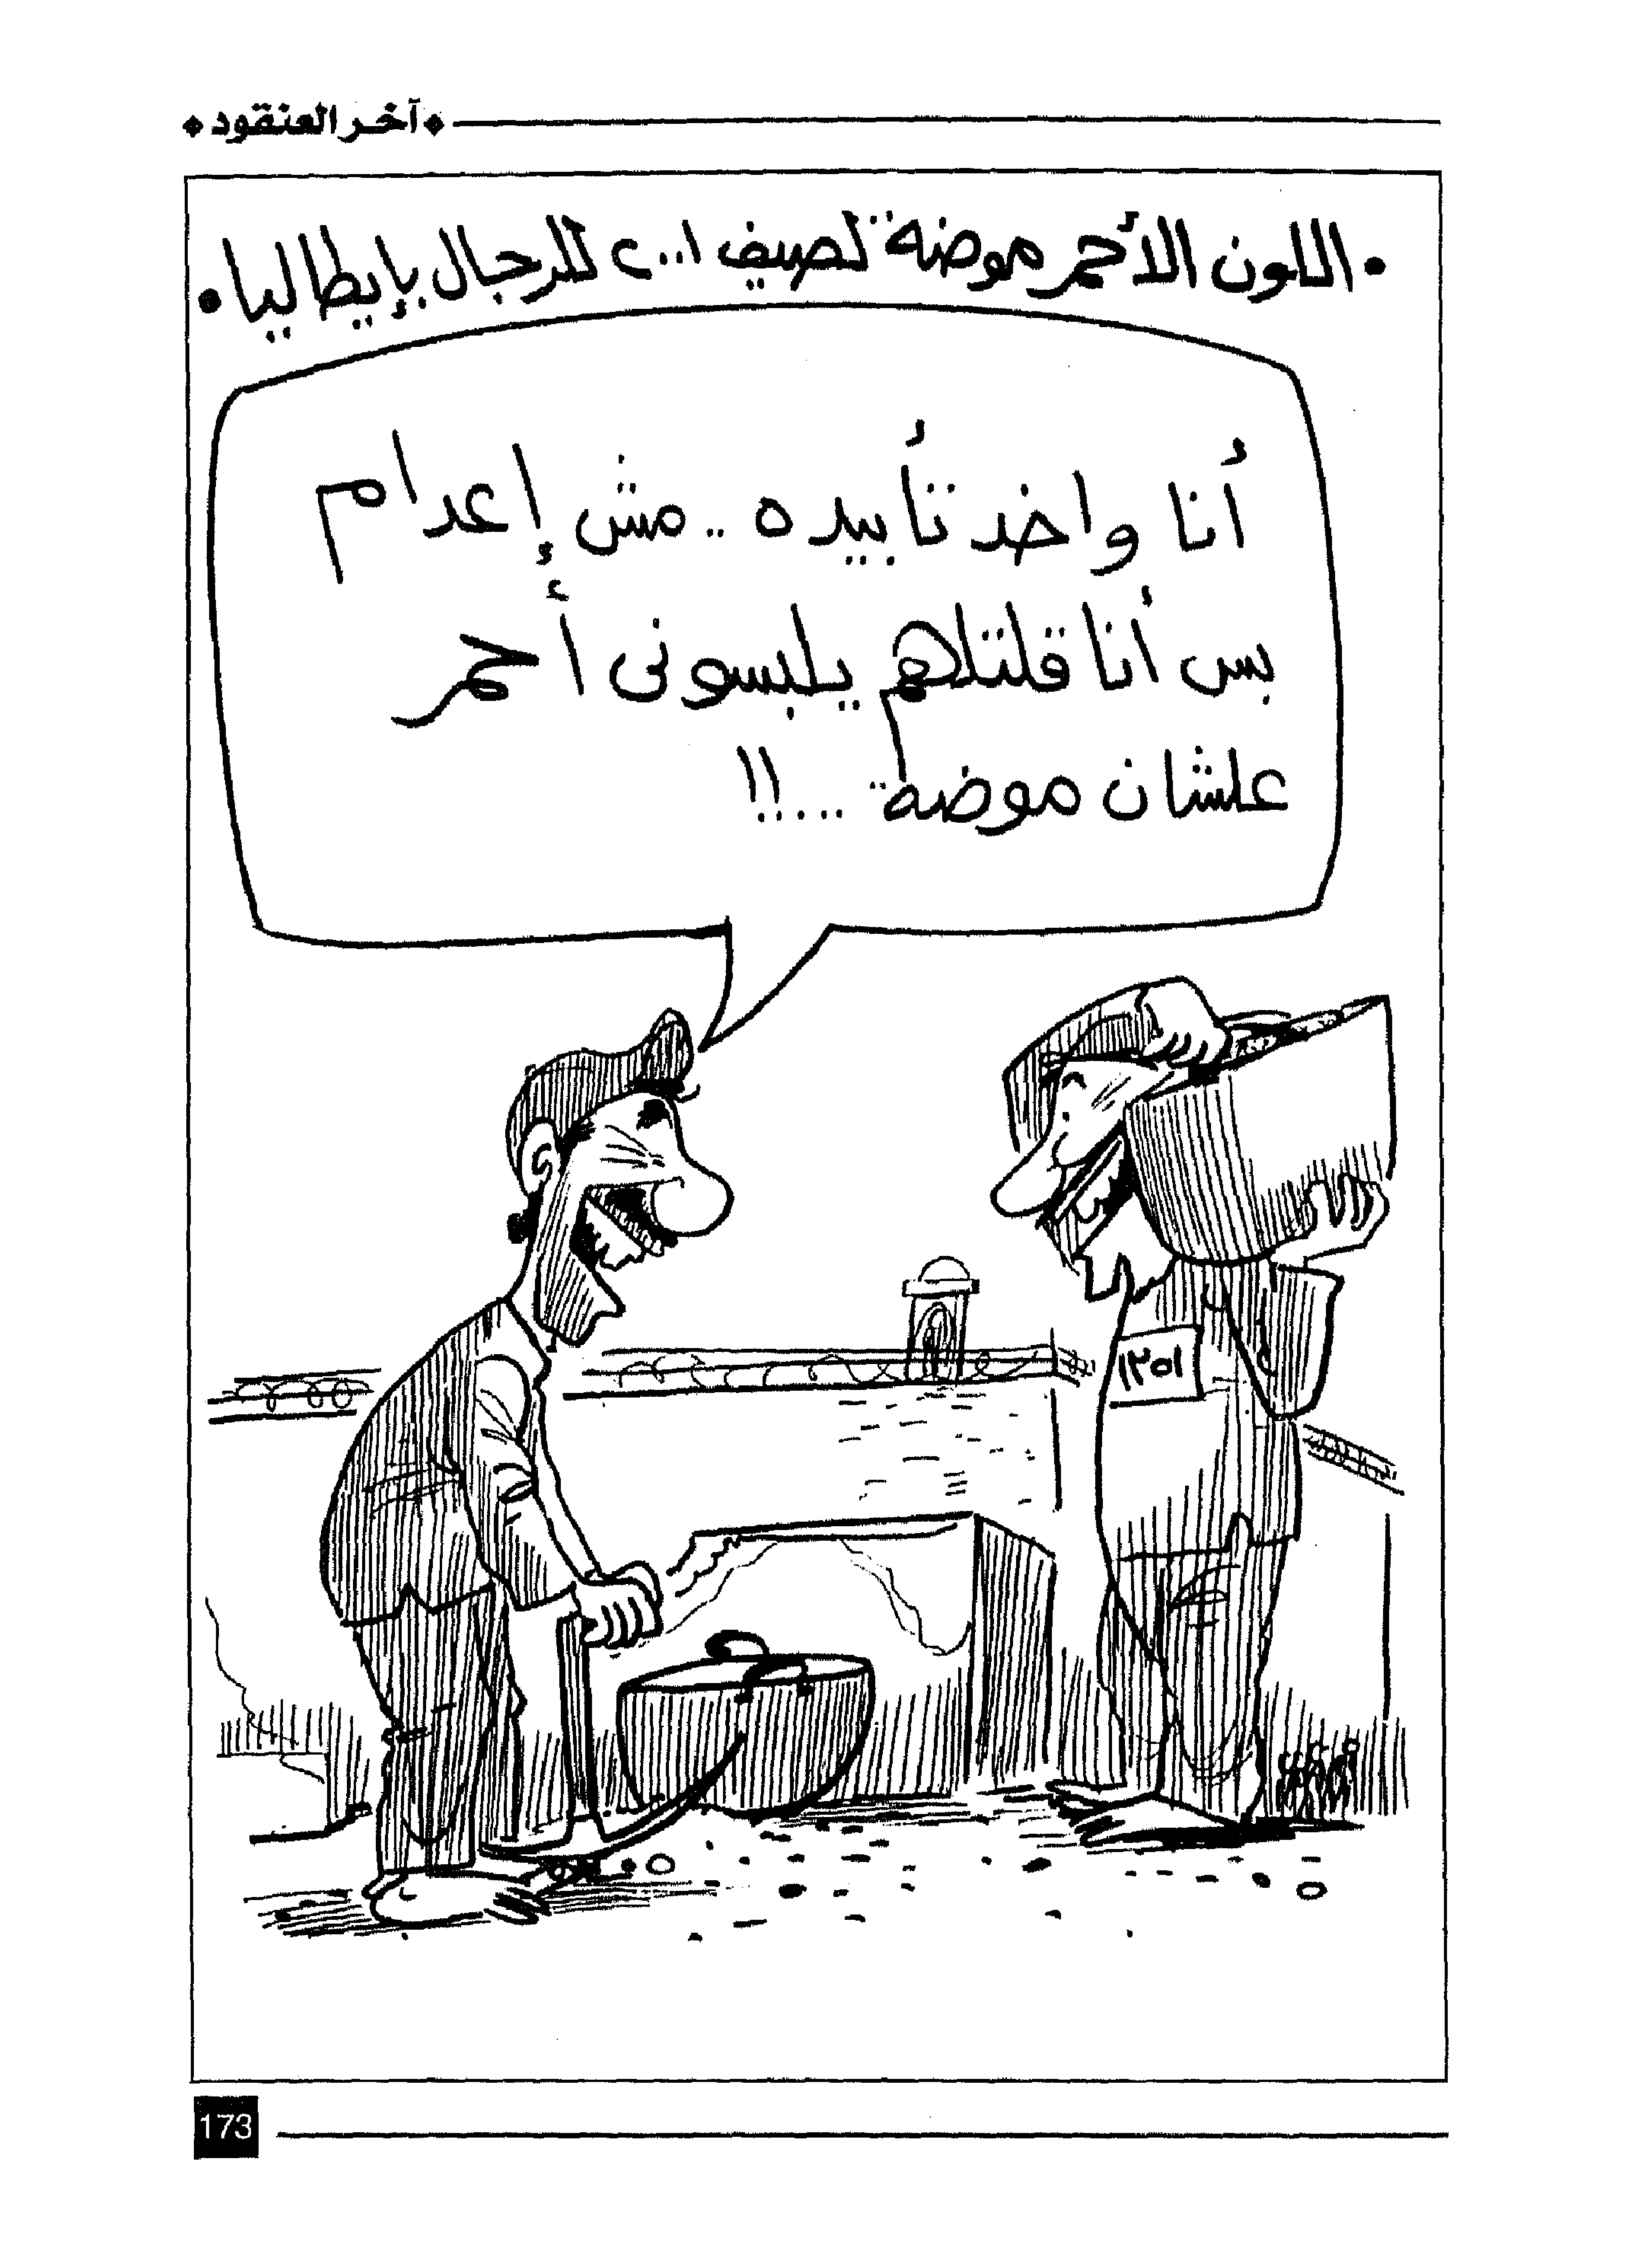 آخر العنقود
• اللون الأحمر موضة لصيف ٢٠٠١ للرجال بإيطاليا •
أنا واخد تأبيده .. مش إعدام
بس أنا قلتلهم يلبسونى أحمر
علشان موضة ...!!
١٢٥١
173